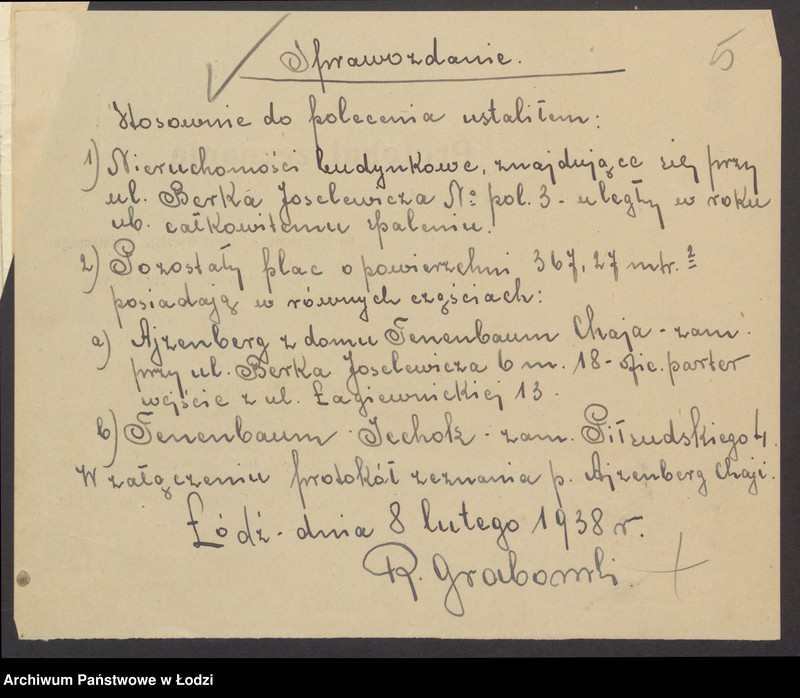 5
Sprawozdanie.
Stosownie do polecenia ustaliłem:
1) Nieruchomości budynkowe, znajdujące się przy
ul. Berka Joselewicza No pol. 3 - uległy w roku
ub. całkowitemu spaleniu.
2) Pozostały plac o powierzchni 367,27 mtr.2
posiadają w równych częściach:
a) Ajzenberg z domu Tenenbaum Chaja - zam.
przy ul. Berka Joselewicza 6 m. 18 - ofic. parter
wejście z ul. Łagiewnickiej 13.
b) Tenenbaum Jechok - zam. Piłsudskiego 4.
W załączeniu protokół zeznania p. Ajzenberg Chaji.
Łódź - dnia 8 lutego 1938 r.
R. Grabowski
Archiwum Państwowe w Łodzi